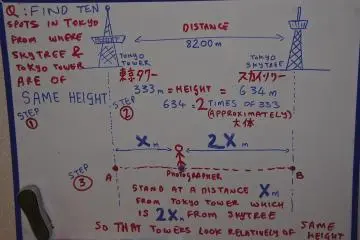 Q: FIND TEN
SPOTS IN TOKYO
FROM WHERE
SKYTREE &
TOKYO TOWER
ARE OF
SAME HEIGHT
DISTANCE
8200m
TOKYO
TOWER
TOKYO
SKYTREE
東京タワー
スカイツリー
333m = HEIGHT = 634m
634 = 2 TIMES OF 333
(APPROXIMATELY)
大体
STEP
①
STEP
②
Xm
2Xm
STEP
③
A
B
PHOTOGRAPHER
STAND AT A DISTANCE Xm
FROM TOKYO TOWER WHICH
IS 2Xm FROM SKYTREE
SO THAT TOWERS LOOK RELATIVELY OF SAME
HEIGHT